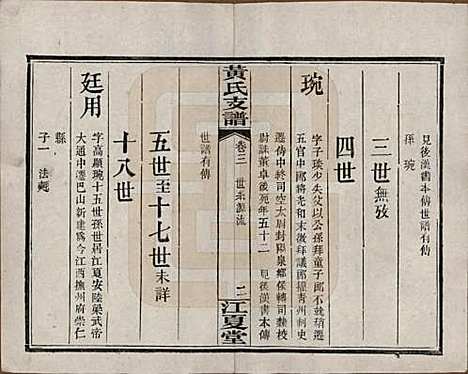 見後漢書本傳世譜有傳
孫琬
三世無攷
四世
琬
字子琰少失父以公孫拜童子郎不就稍遷
五官中郎將光和末徵拜議郎擢青州刺史
遷侍中終司空太尉封陽泉鄉侯轉司隸校
尉誅董卓後死年五十二 見後漢書本傳
世譜有傳
黃氏支譜
卷三 世系源流
二
江夏堂
五世至十七世未詳
十八世
廷用
字高顯琬十五世孫世居江夏安陸梁武帝
大通中遷巴山新建爲今江西撫州府崇仁
縣
子一 法𣰰